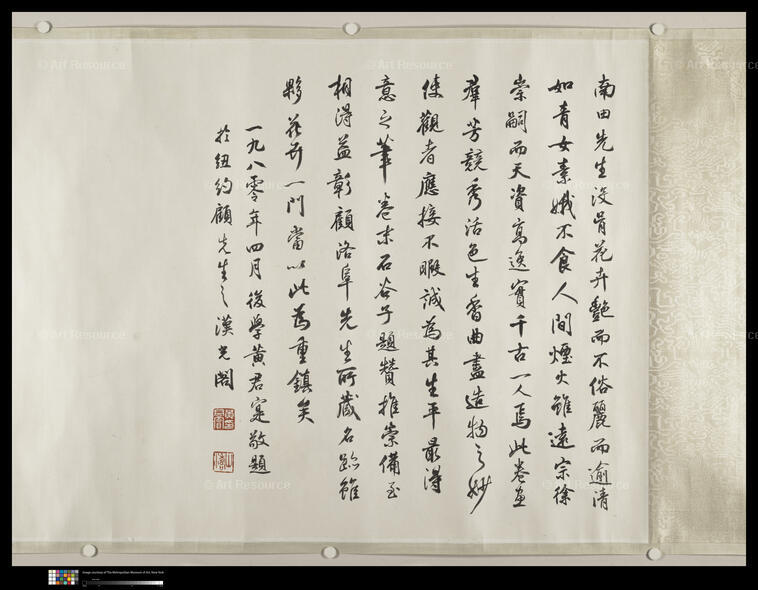 南田先生沒骨花卉艷而不俗麗而逾清
如青女素娥不食人間煙火雖遠宗徐
崇嗣而天資高逸實千古一人焉此卷画
群芳競秀活色生香曲盡造物之妙
使觀者應接不暇誠為其生平最得
意之筆卷末石谷子題贊推崇備至
相得益彰顧洛阜先生所藏名跡雖
夥花卉一門當以此為重鎮矣
一九八零年四月後學黃君寔敬題
於紐約顧先生之漢光閣
© Art Resource
© Art Resource
© Art Resource
© Art Resource
© Art Resource
© Art Resource
© Art Resource
© Art Resource
© Art Resource
Image courtesy of The Metropolitan Museum of Art, New York